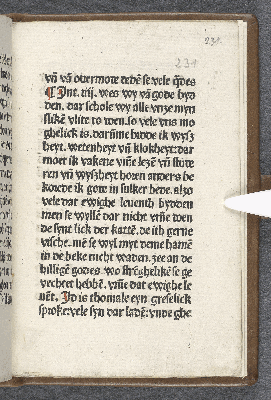 231
231
vñ vã ouermote dedẽ se vele q̃des
¶ Int. iij. wes wy vã gode byd
den. dar schole wy alle vnze myn
slikẽ vlite to don. so vele vns mo
ghelick is. darũme bidde ik wysz
heyt. wetenheyt vñ klokheyt: dar
moet ik vakene vm̃e lezẽ vñ stude
ren vñ wyszheyt horen anders be
korede ik gode in sulker bede. also
vele dat ewighe leuenth bydden
men se wyllẽ dar nicht vm̃e don
de synt lick der kattẽ. de ith gerne
vissche. mẽ se wyl myt deme hamẽ
in de beke nicht waden. zee an de
hilligẽ godes. wo strẽghelikẽ se ge
vechtet hebbẽ. vm̃e dat ewighe le
uẽt. Jd is thomale eyn greselick
sproke: vele syn dar ladẽ: vnde ghe